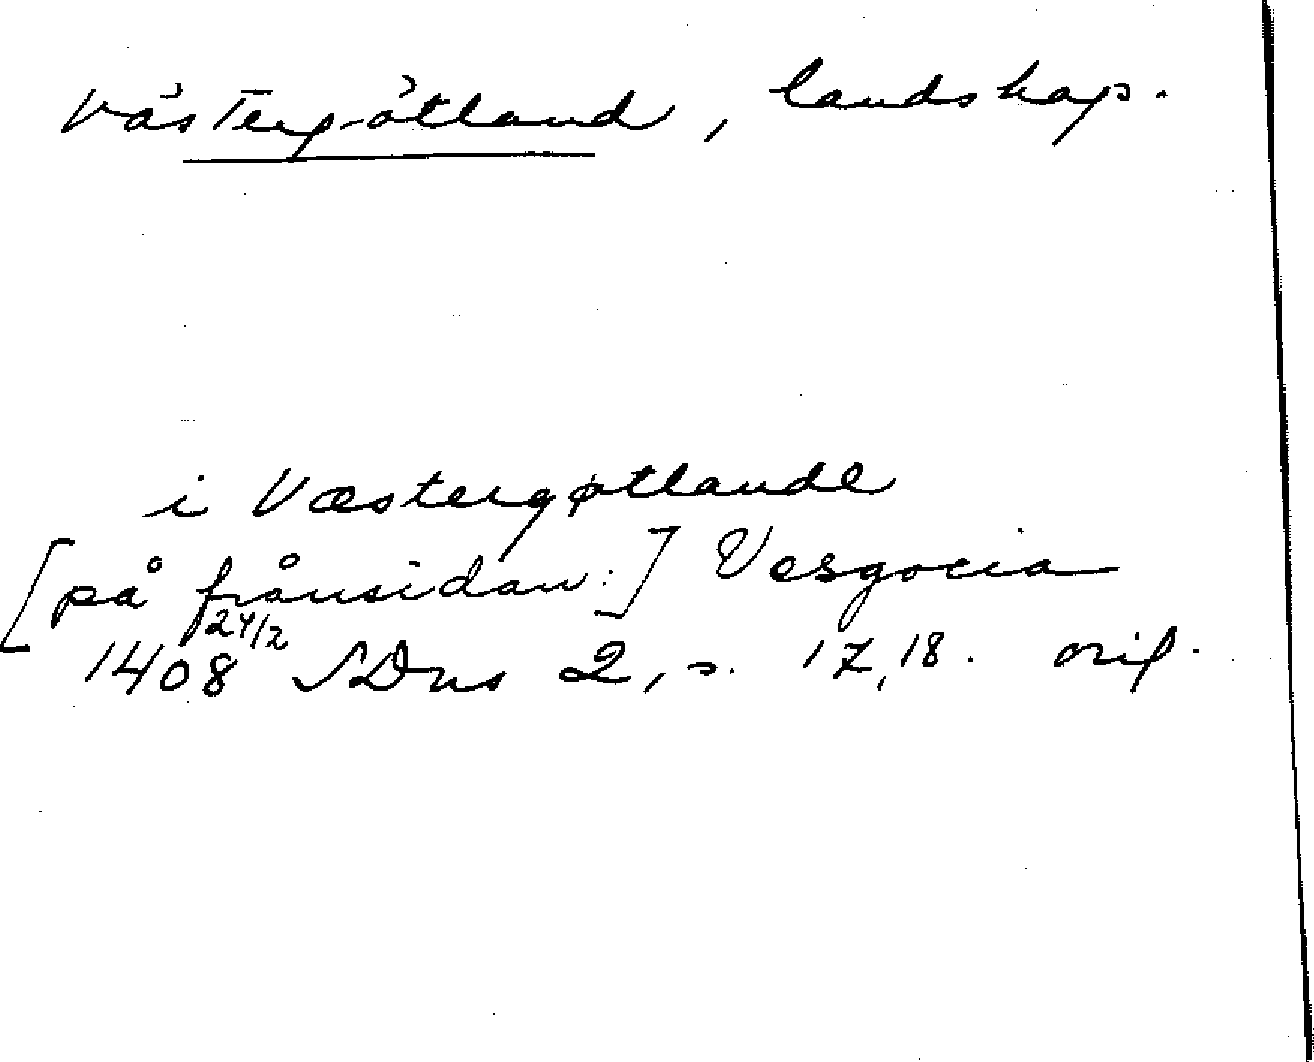 Västergötland, landskap.
i Væstergøtlande
[på frånsidan:] Vesgocia
1408 24/2 SDns 2, s. 17, 18. orig.